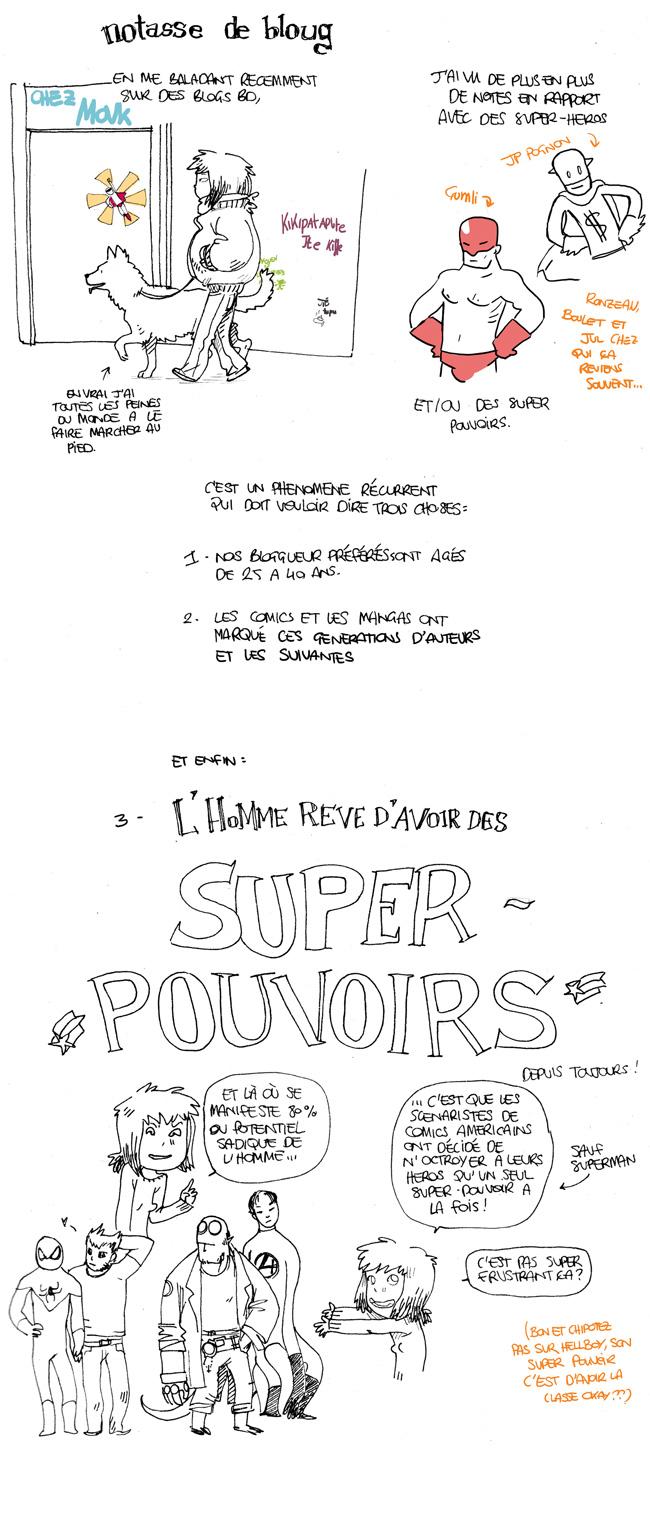 notasse de bloug
EN ME BALADANT RECEMMENT
SUR DES BLOGS BD,
CHEZ
Mouk
KiKiPATAPUTE
JEE Kiffe
EN VRAI J'AI
TOUTES LES PEINES
DU MONDE A LE
FAIRE MARCHER AU
PIED.
J'AI VU DE PLUS EN PLUS
DE NOTES EN RAPPORT
AVEC DES SUPER-HEROS
JP POGNON
Gumli
$
RONZEAU,
BOULET ET
JUL CHEZ
QUI ÇA
REVIENS
SOUVENT...
ET/OU DES SUPER
POUVOIRS.
C'EST UN PHENOMENE RÉCURRENT
QUI DOIT VOULOIR DIRE TROIS CHOSES:
1 - NOS BLOGGUEUR PRÉFÉRÉS SONT AGÉS
DE 25 A 40 ANS.
2. LES COMICS ET LES MANGAS ONT
MARQUÉ CES GENERATIONS D'AUTEURS
ET LES SUIVANTES
ET ENFIN :
3 - L'HOMME REVE D'AVOIR DES
SUPER -
POUVOIRS
DEPUIS TOUJOURS !
ET LÀ OÙ SE
MANIFESTE 80%
DU POTENTIEL
SADIQUE DE
L'HOMME...
... C'EST QUE LES
SCENARISTES DE
COMICS AMERICAINS
ONT DÉCIDÉ DE
N'OCTROYER A LEURS
HEROS QU'UN SEUL
SUPER-POUVOIR A
LA FOIS !
SAUF
SUPERMAN
4
C'EST PAS SUPER
FRUSTRANT ÇA ?
(BON ET CHIPOTEZ
PAS SUR HELLBOY, SON
SUPER POUVOIR
C'EST D'AVOIR LA
CLASSE OKAY ??)